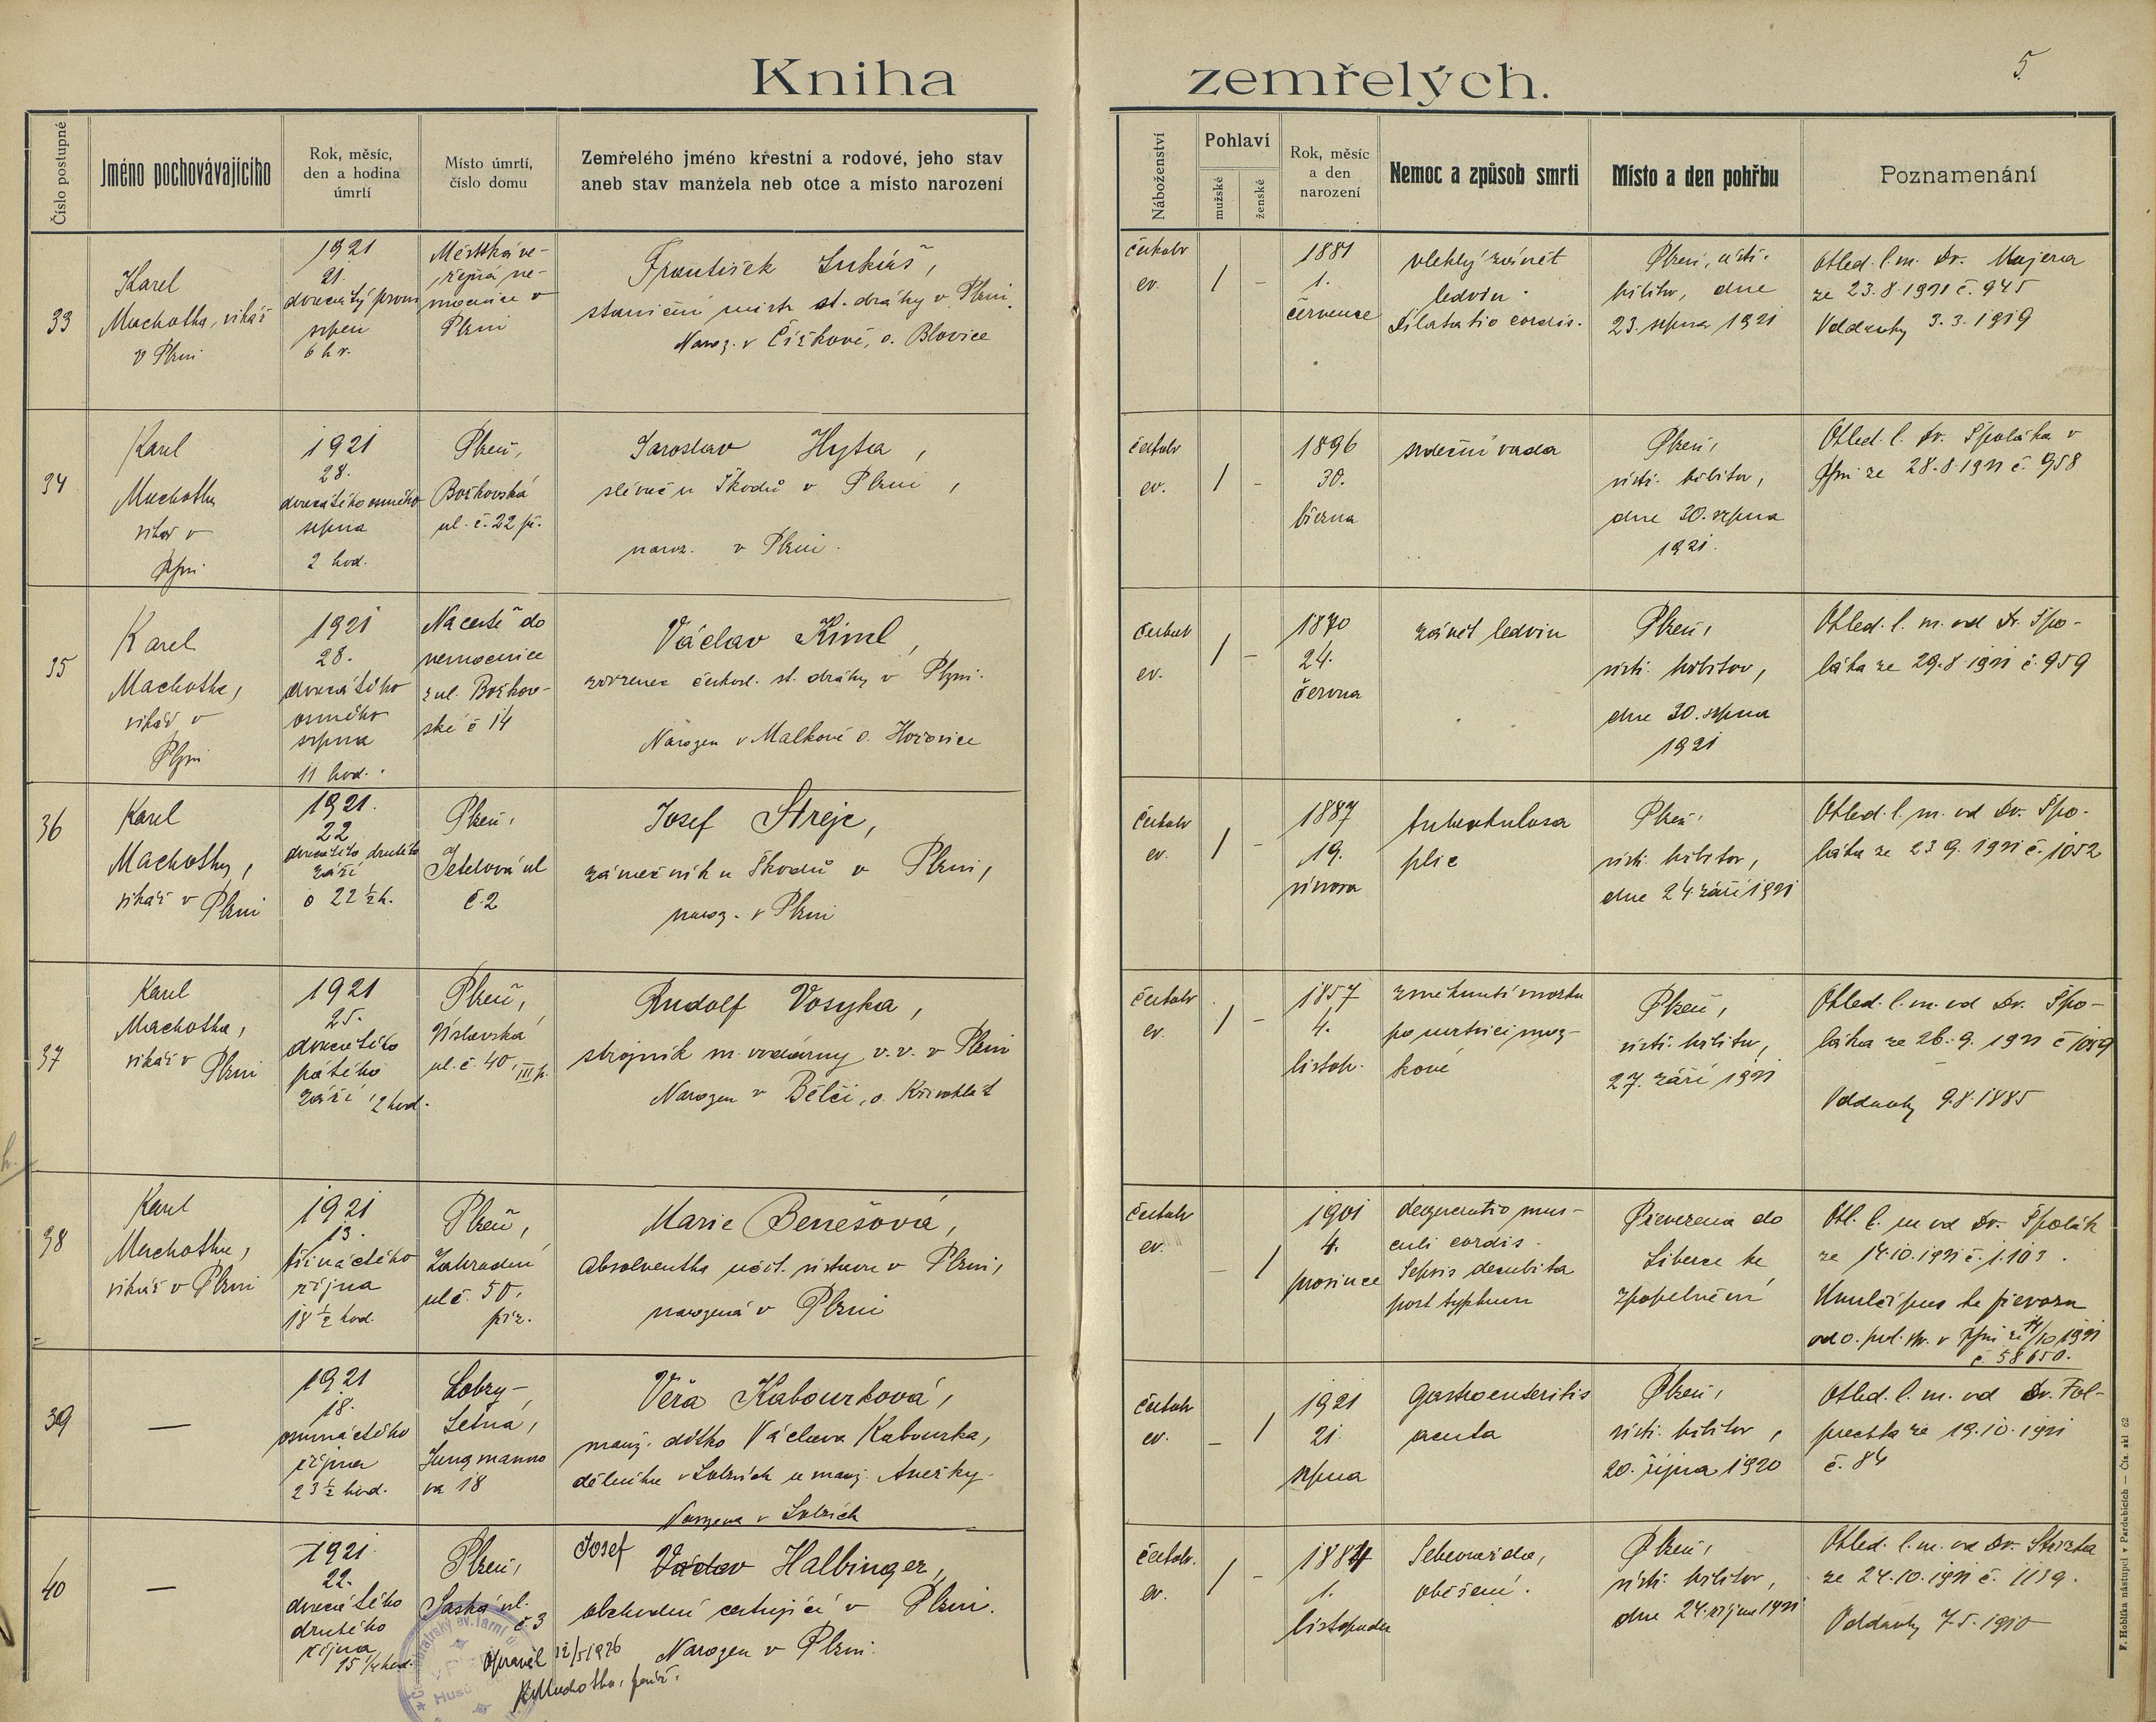 Kniha zemřelých.
5
Číslo postupné
Jméno pochovávajícího
Rok, měsíc,
den a hodina
úmrtí
Místo úmrtí,
číslo domu
Zemřelého jméno křestní a rodové, jeho stav
aneb stav manžela neb otce a místo narození
Náboženství
Pohlaví
mužské
ženské
Rok, měsíc
a den
narození
Nemoc a způsob smrti
Místo a den pohřbu
Poznamenání
33
Karel
Machotka, vikář
v Plzni
1921
21.
dvacátý první
srpen
6 hr.
Městská ve-
řejná ne-
mocnice v
Plzni
František Lukáš,
staniční mistr st. dráhy v Plzni.
Naroz. v Čížkově, o. Blovice
českobr
ev.
/
–
1881
1.
července
vleklý zánět
ledvin.
Dilatatio cordis.
Plzeň, ústř.
hřbitov, dne
23. srpna 1921
Ohled. l. m. Dr. Majera
ze 23.8.1921 č. 945
Oddavky 3.3.1919
34
Karel
Machotka
vikář v
Plzni
1921
28.
dvacátého osmého
srpna
2 hod.
Plzeň,
Božkovská
ul. č. 22 př.
Jaroslav Hyta,
slévač u Škodů v Plzni,
naroz. v Plzni.
ev.
/
–
1896
30.
března
srdeční vada
Plzeň,
ústř. hřbitov,
dne 30. srpna
1921.
Ohled. l. Dr. Špoláka v
Plzni ze 28.8.1921 č. 958
35
Karel
Machotka,
vikář v
Plzni
1921
28.
dvacátého
osmého
srpna
11 hod.
Na cestě do
nemocnice
z ul. Božkov-
ské č 14
Václav Kiml,
zřízenec českosl. st. dráhy v Plzni.
Narozen v Malkově o. Hořovice
ev.
/
–
1870
24.
června
zánět ledvin
Plzeň,
ústř. hřbitov,
dne 30. srpna
1921
Ohled. l. m. od Dr. Špo-
láka ze 29.8.1921 č. 959
36
Karel
Machotka,
vikář v Plzni
1921.
22
dvacátého druhého
září
o 22 ½ h.
Plzeň,
Jetelová ul
č. 2
Josef Strejc,
zámečník u Škodů v Plzni,
naroz. v Plzni
českobr
ev.
/
–
1887
19.
února
tuberkulosa
plic
Plzeň,
ústř. hřbitov,
dne 24. září 1921
Ohled. l. m. od Dr. Špo-
láka ze 23 9. 1921 č. 1052
37
Karel
Machotka,
vikář v Plzni
1921
25.
dvacátého
pátého
září 12 hod.
Plzeň,
ul. č. 40, III p.
Rudolf Vosyka,
strojník m. vodárny v. v. v Plzni
Narozen v Bělči, o. Křivoklát
českobr
ev.
/
–
1857
4.
listop.
změknutí mozku
po mrtvici moz-
kové
Plzeň,
ústř. hřbitov,
27. září 1921
Ohled. l. m. od Dr. Špo-
láka ze 26. 9. 1921 č 1059
Oddavky 9.8.1885
38
Karel
Machotka,
vikář v Plzni
1921
13.
třináctého
října
18 ½ hod.
Plzeň,
Zahradní
ul č. 50,
příz.
Marie Benešová,
Absolventka učit. ústavu v Plzni,
narozená v Plzni
českobr
ev.
–
/
1901
4.
prosince
degeneratio mus-
culi cordis.
Sepsis decubita
post typhum
Převezena do
Liberce ke
zpopelnění
Ohl. l. m od Dr. Špolák
ze 14.10.1921 č. 1.103.
od o. pol. spr. v Plzni ze 14/10 1921
č. 58650.
39
—
1921
18.
osmnáctého
října
23 ½ hod.
Lobzy-
Letná,
Jungmanno
va 18
Věra Kabourková,
manž. dítko Václava Kabourka,
dělníka v Lobzích a manž. Anežky.
Narozena v Lobzích
českobr
ev.
–
/
1921
21.
srpna
Gastroenteritis
acuta
Plzeň,
ústř. hřbitov,
20. října 1920
Ohled. l. m. od Dr. Fol-
prechta ze 19.10.1921
č. 84
40
—
1921.
22.
dvacátého
druhého
října
15 ¼ hod.
Plzeň,
Saská ul.
č. 3
Josef
Václav Halbinger,
obchodní cestující v Plzni.
Narozen v Plzni.
Opravil 12/5 1926
K. Machotka, farář.
českobr.
ev.
/
–
1884
1.
listopadu
Sebevražda,
oběšení.
Plzeň,
ústř. hřbitov,
dne 24. října 1921
ze 24.10.1921 č. 1139.
Oddavky 7.5.1910
F. Hoblíka nástupci v Pardubicích — Čís. skl 62